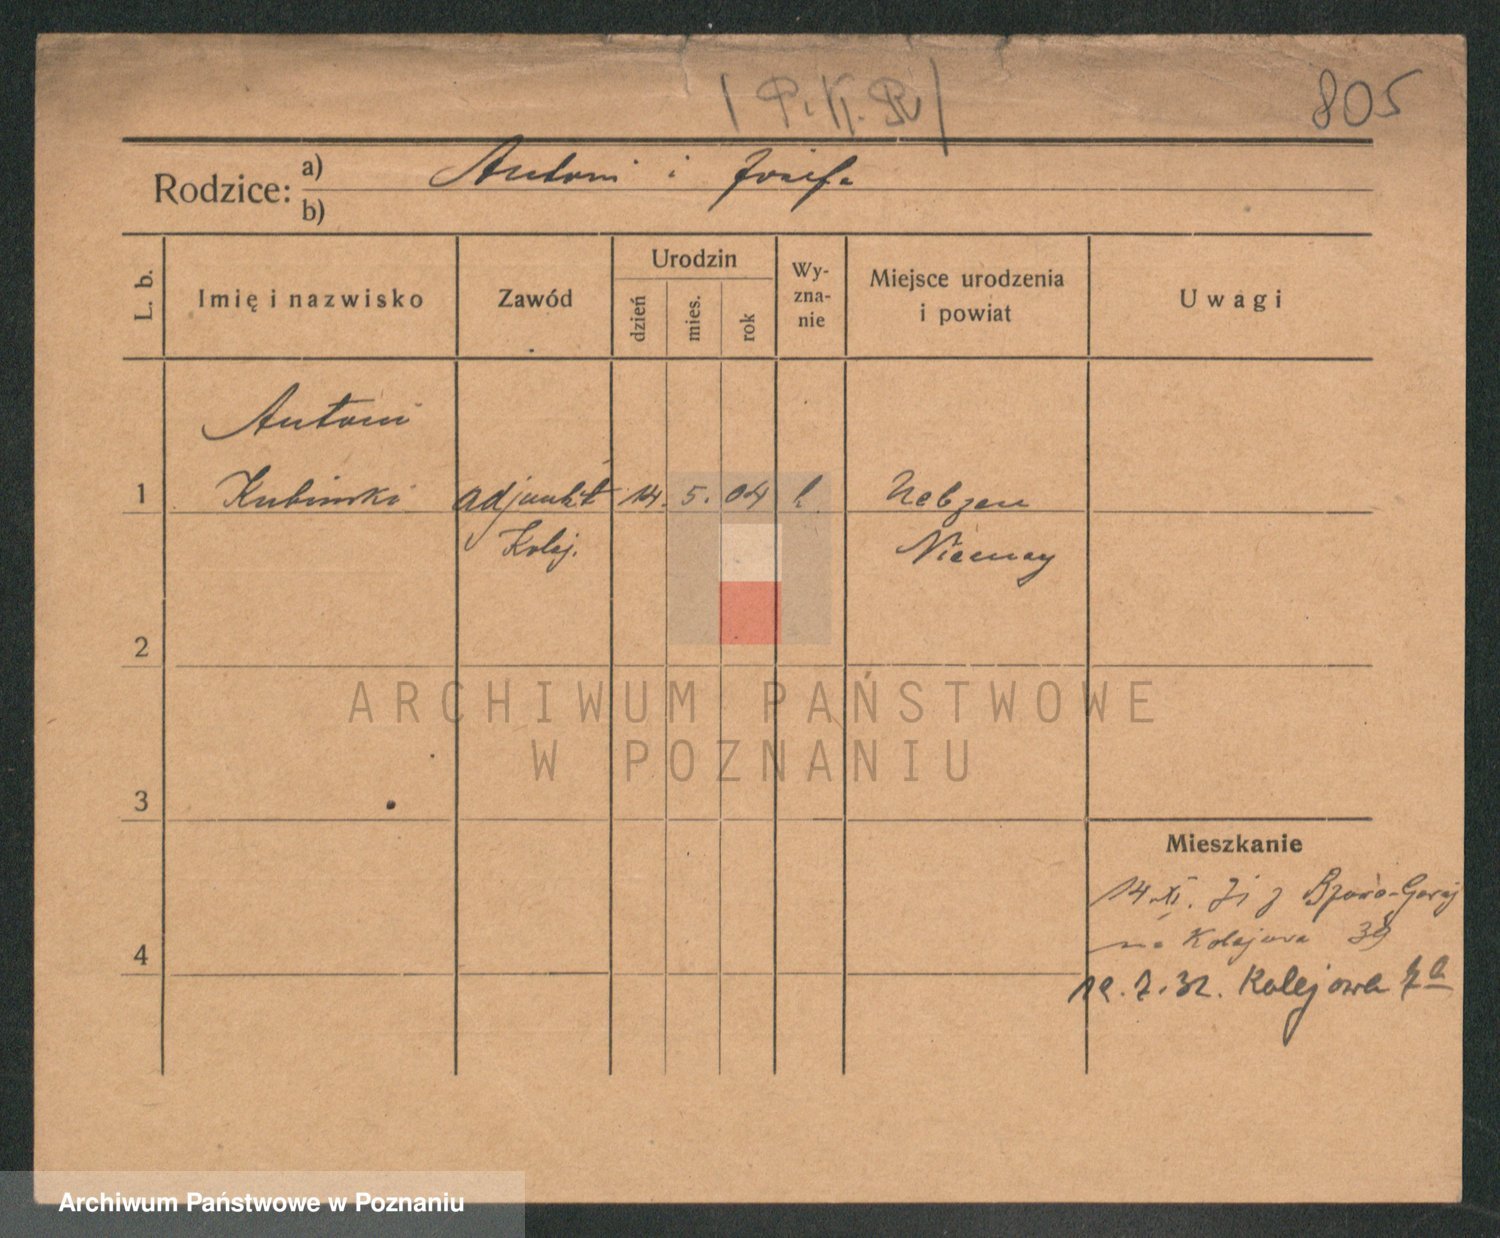 (P.K.P.)
805
Rodzice: a) Antoni i Józefa
b)
L. b.
Imię i nazwisko
Zawód
Urodzin
dzień
mies.
rok
Wy-
zna-
nie
Miejsce urodzenia
i powiat
Uwagi
Antoni
1 Kubinski adjunkt 14. 5. 04
Kolej. Niemcy
2
3
4
Mieszkanie
14.XI. 31 z
na Kolejowa 39
19.7.32. Kolejowa
ARCHIWUM PAŃSTWOWE
W POZNANIU
Archiwum Państwowe w Poznaniu